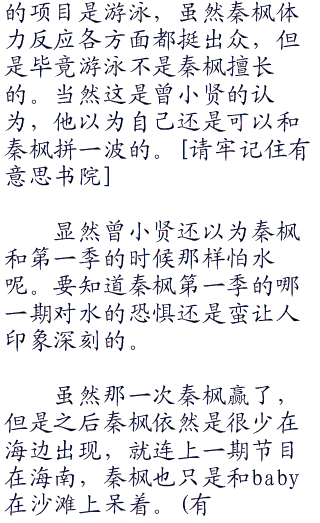 的项目是游泳，虽然秦枫体
力反应各方面都挺出众，但
是毕竟游泳不是秦枫擅长
的。当然这是曾小贤的认
为，他以为自己还是可以和
秦枫拼一波的。[请牢记住有
意思书院]
显然曾小贤还以为秦枫
和第一季的时候那样怕水
呢。要知道秦枫第一季的哪
一期对水的恐惧还是蛮让人
印象深刻的。
虽然那一次秦枫赢了，
但是之后秦枫依然是很少在
海边出现，就连上一期节目
在海南，秦枫也只是和baby
在沙滩上呆着。(有